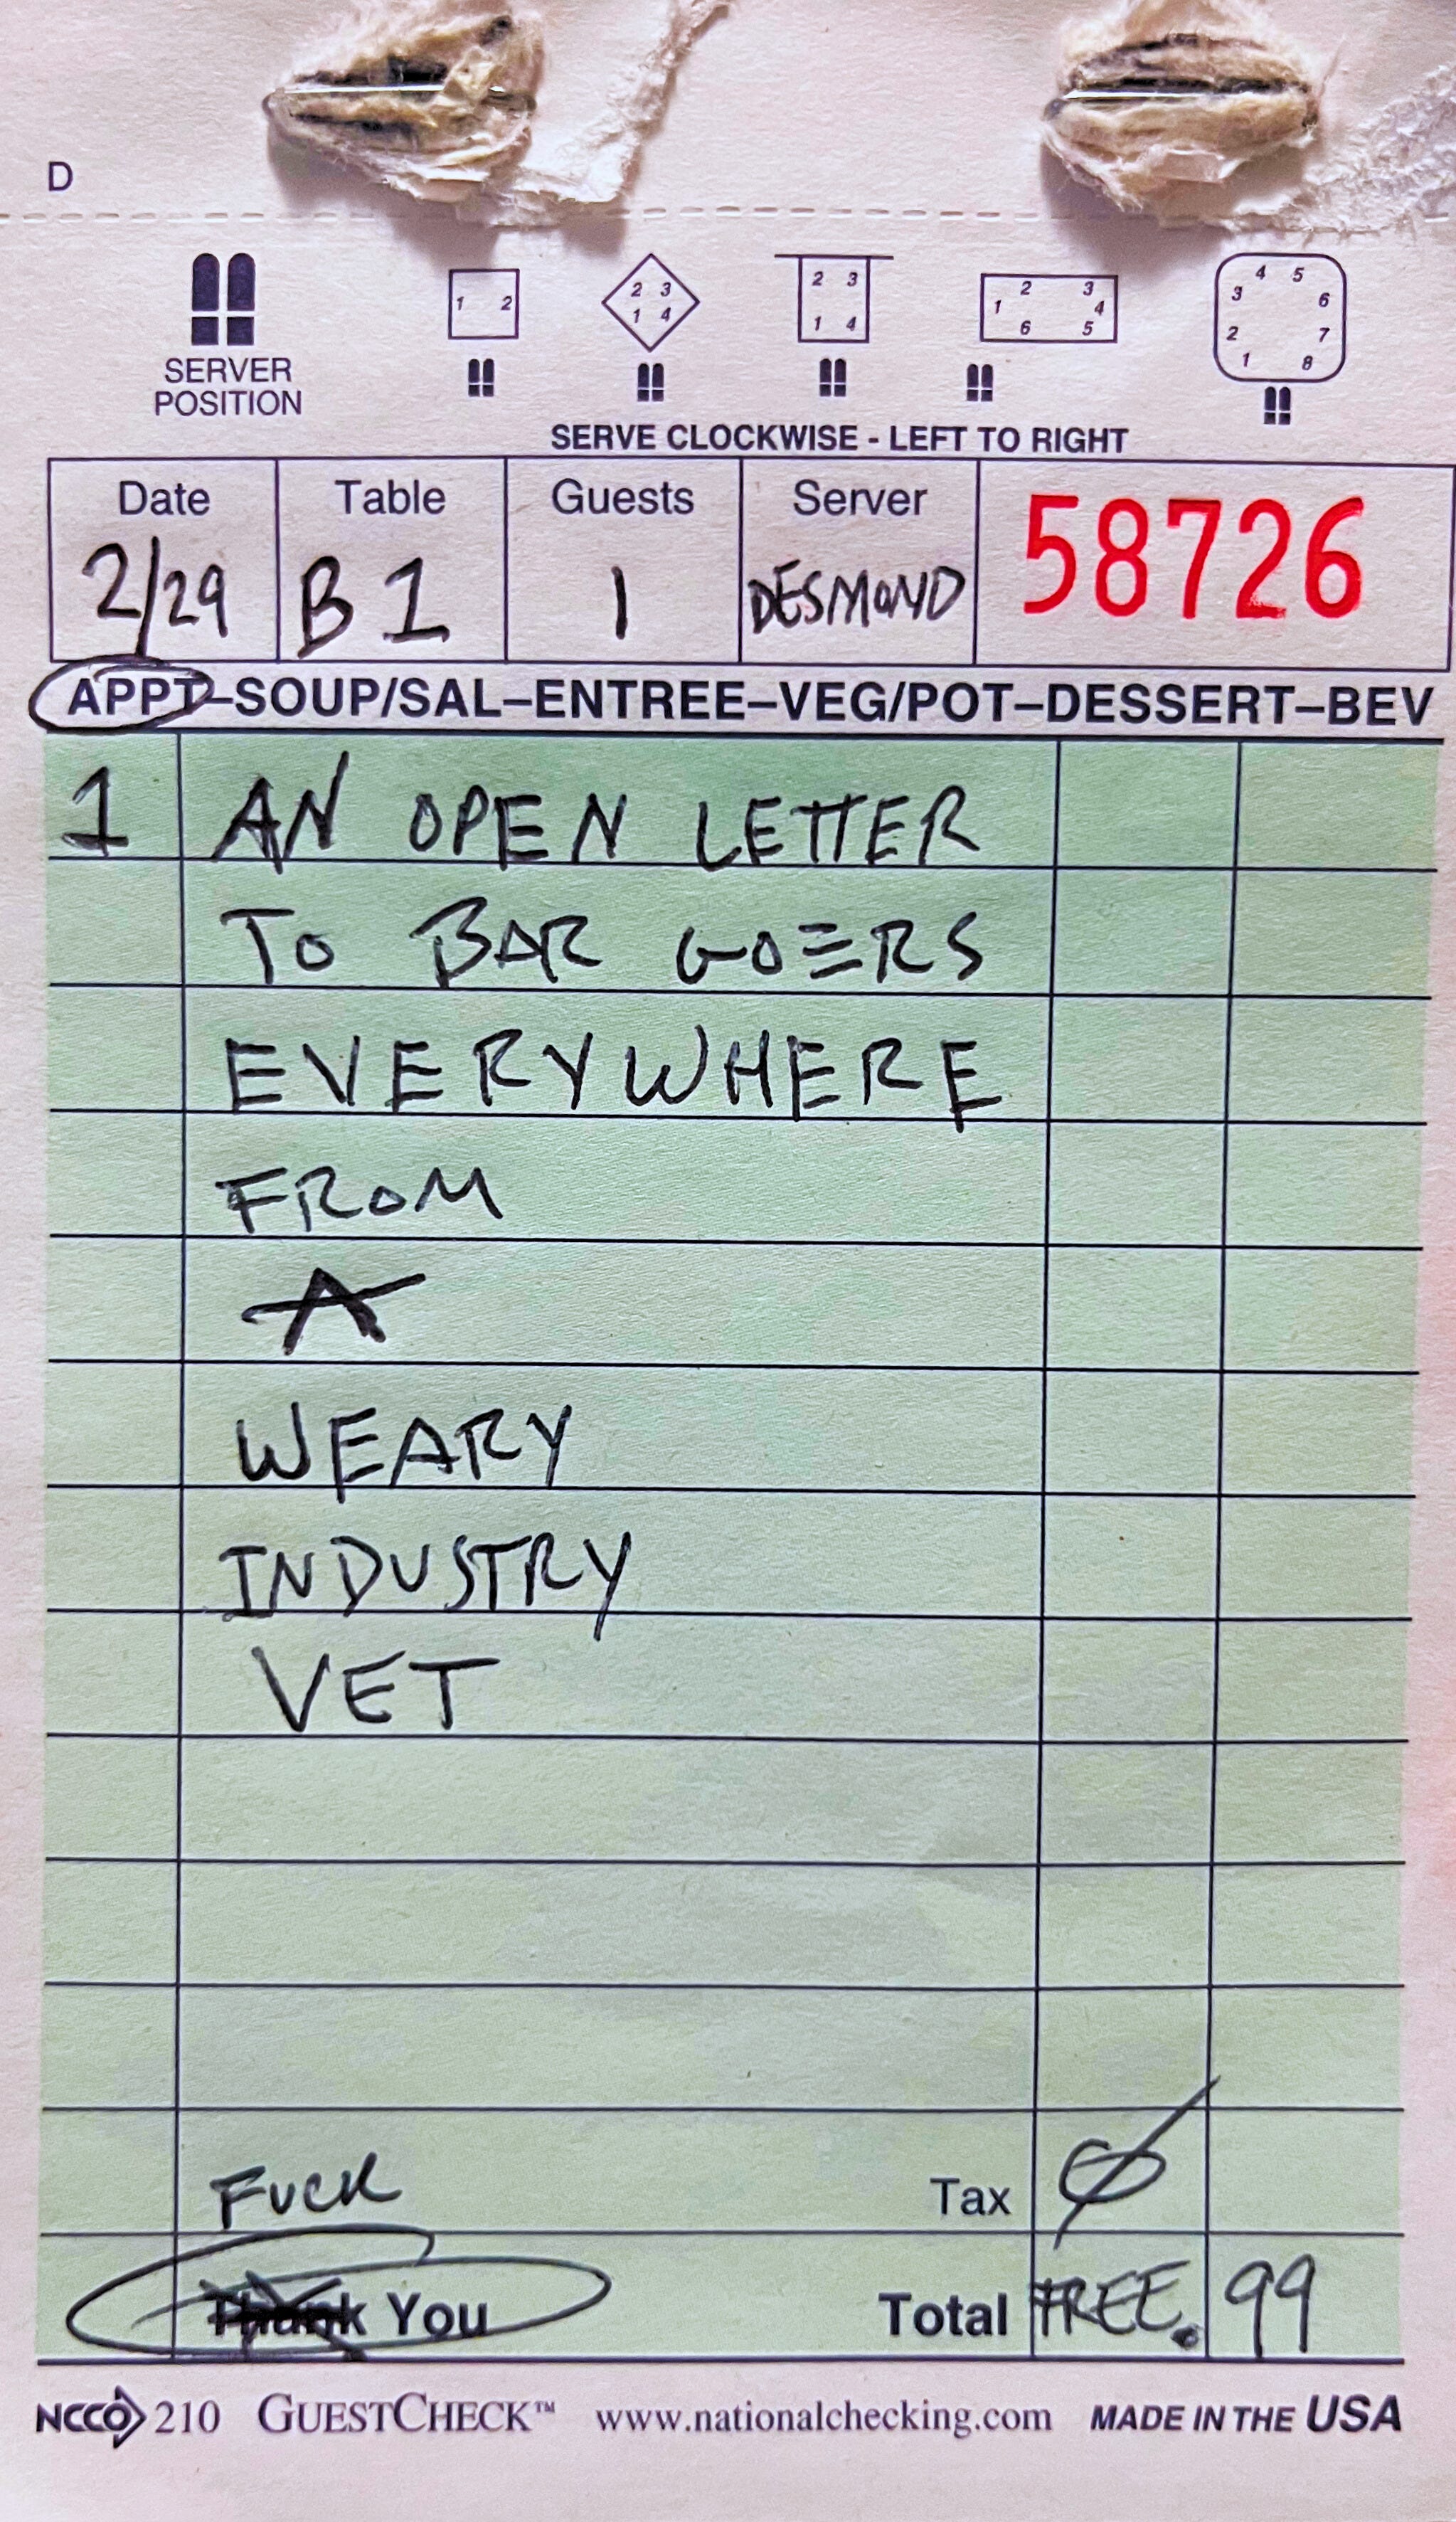 D
SERVER
POSITION
1 2
2 3
1 4
2 3
1 4
2 3
1 4
6 5
4 5
3 6
2 7
1 8
SERVE CLOCKWISE - LEFT TO RIGHT
Date Table Guests Server 58726
2/29 B1 1 DESMOND
APPT–SOUP/SAL–ENTREE–VEG/POT–DESSERT–BEV
1 AN OPEN LETTER
TO BAR GOERS
EVERYWHERE
FROM
A
WEARY
INDUSTRY
VET
FUCK Tax Ø
Thank You Total FREE.99
NCCO 210 GUESTCHECK™ www.nationalchecking.com MADE IN THE USA